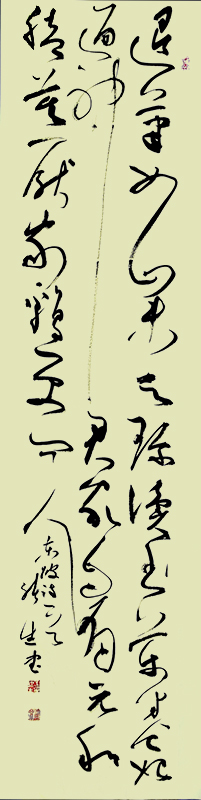 退筆如山未足珍讀書萬卷始
通神君家自有元和
脚莫厭家雞更問人
東坡詩
生書